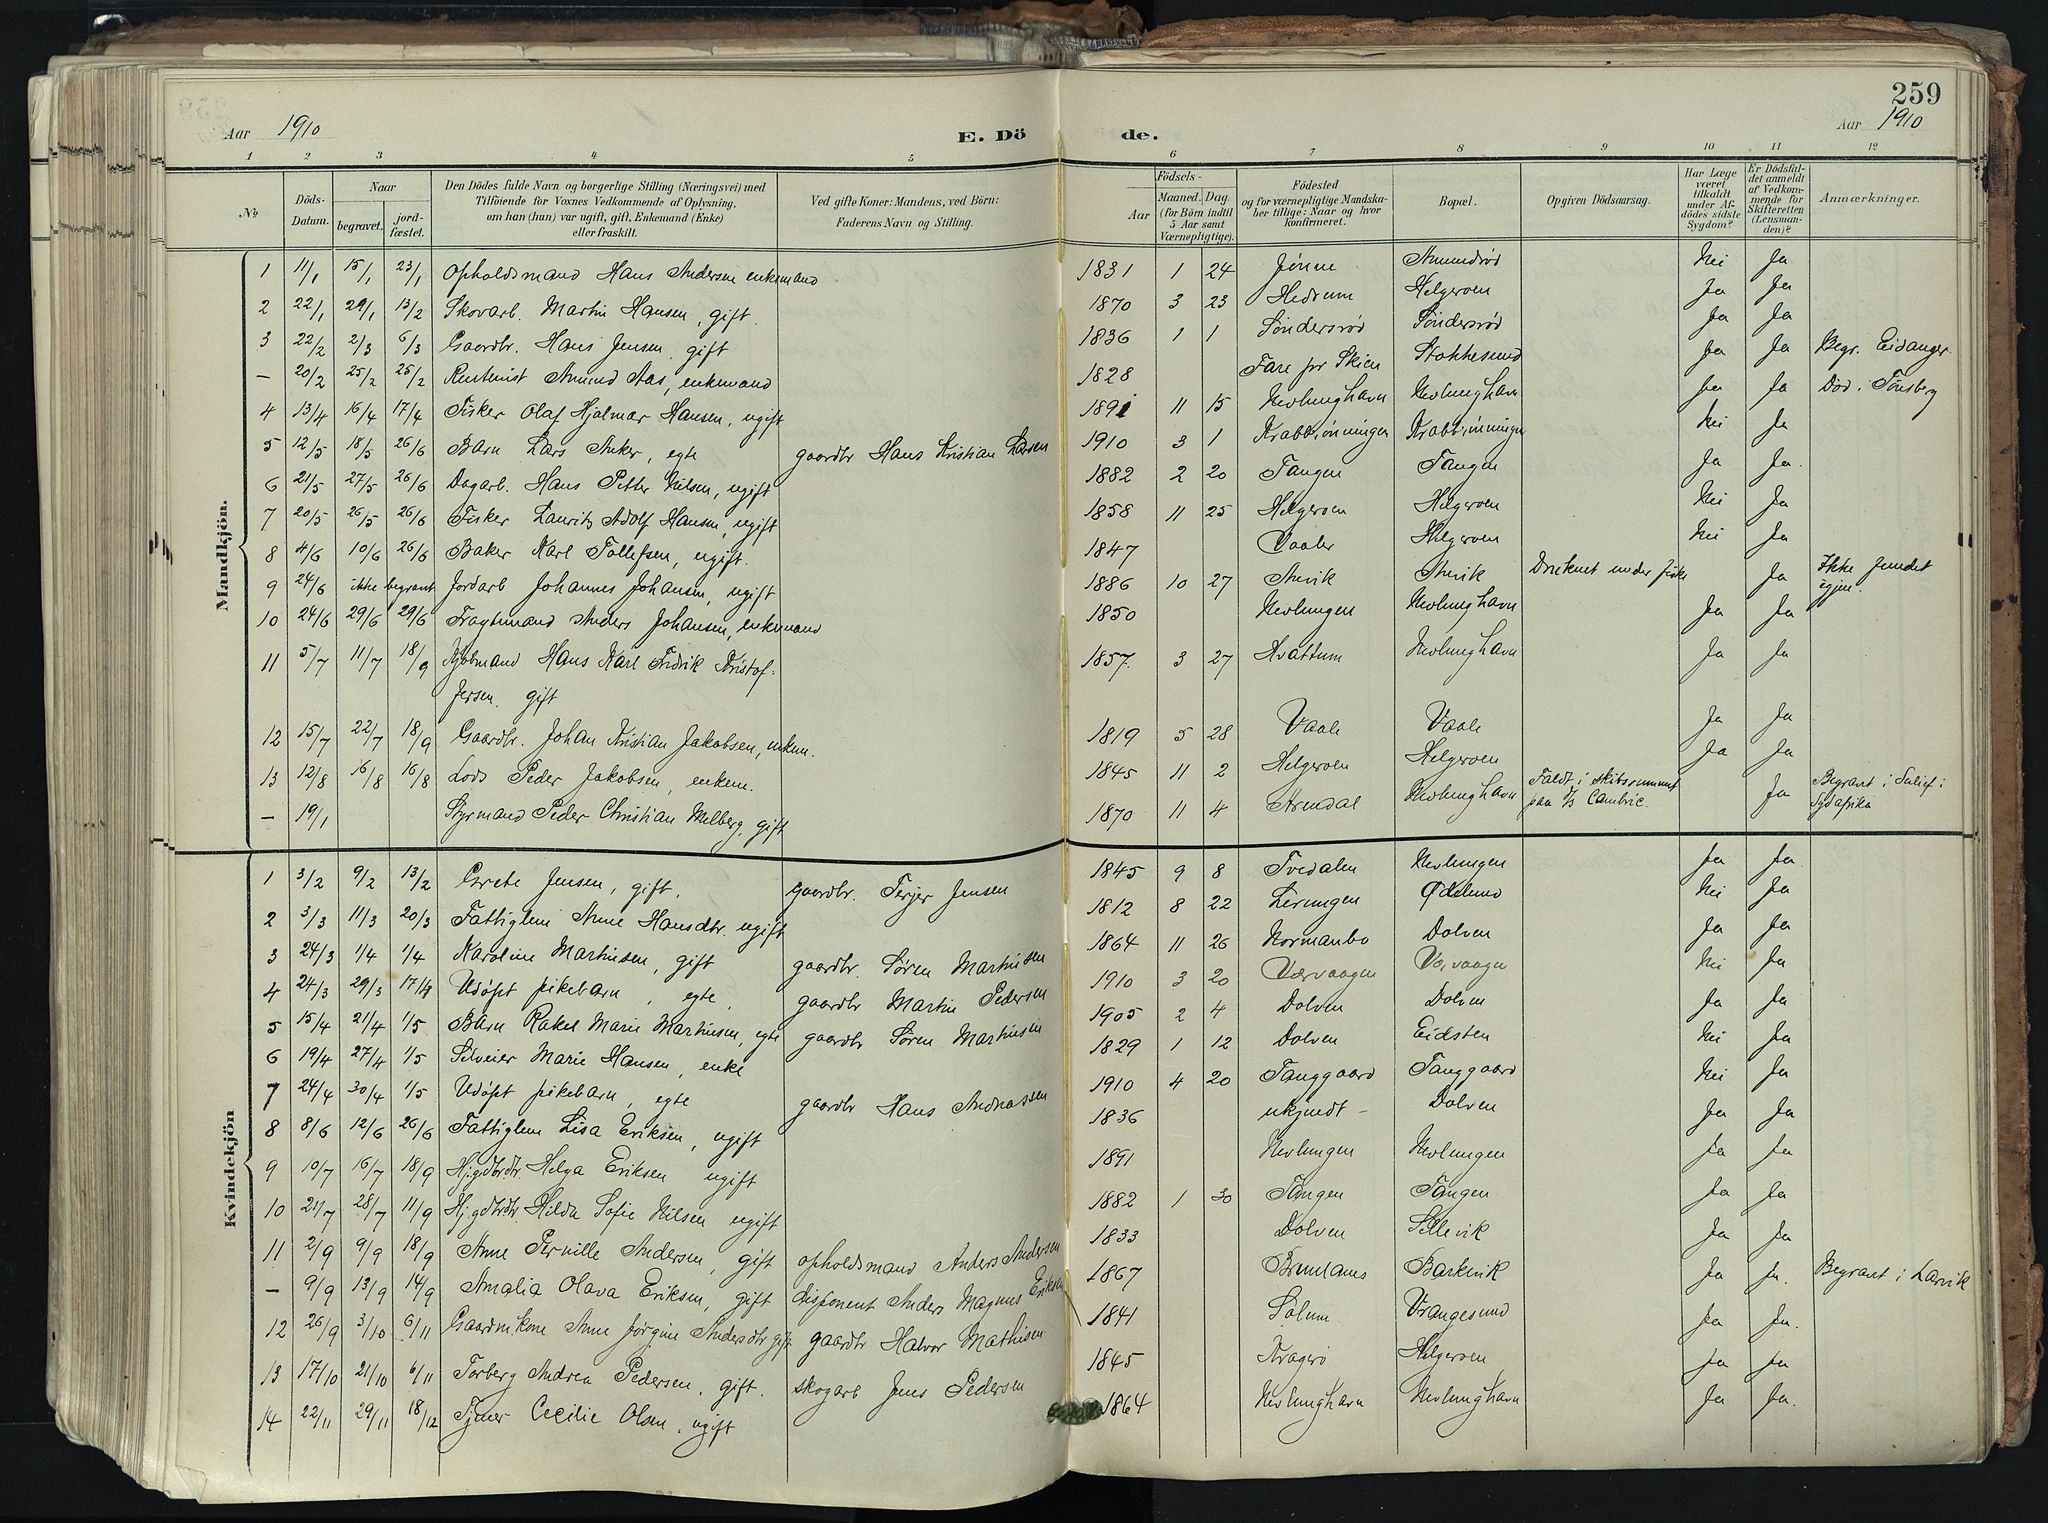 259
Aar 1910 E. Dö de. Aar 1910
1 2 3 4 5 6 7 8 9 10 11 12
No
Döds-Datum.
Naar
begravet.
jord-fæstet.
Den Dödes fulde Navn og borgerlige Stilling (Næringsvei) med
Tilföiende for Voxnes Vedkommende af Oplysning,
om han (hun) var ugift, gift, Enkemand (Enke)
eller fraskilt.
Ved gifte Koner: Mandens, ved Börn:
Faderens Navn og Stilling.
Födsels-
Aar
Maaned. Dag.
(for Börn indtil
5 Aar samt
Værnepligtige).
Födested
og for værnepligtige Mandska-
ber tillige: Naar og hvor
konfirmeret.
Bopæl.
Opgiven Dödsaarsag.
Har Læge
været
tilkaldt
under Af-
dödes sidste
Sygdom?
Er Dödsfal-
det anmeldt
af Vedkom-
mende for
Skifteretten
(Lensman-
den)?
Anmærkninger.
Mandkjön.
1 11/1 15/1 23/1 Opholdsmand Hans Andersen enkemand 1831 1 24 Jónne Amundröd Nei Ja
2 22/1 29/1 13/2 Skovarb. Martin Hansen, gift. 1870 3 23 Hedrum Helgeroen Ja Ja
3 22/2 2/3 6/3 Gaardbr. Hans Jensen, gift 1836 1 1 Söndersröd Söndersröd Ja Ja Begr. Eidanger
– 20/2 25/2 25/2 Rentenist Amund Aas, enkemand 1828 Fare pr Skien Stokkesund Ja Ja Död i Tönsberg
4 13/4 16/4 17/4 Fisker Olaf Hjalmar Hansen, ugift 1891 11 15 Nevlunghavn Nevlunghavn Ja Ja
5 12/5 18/5 26/6 Barn Lars Anker, egte gaardbr Hans Kristian Larsen 1910 3 1 Krabbrönningen Krabbrönningen Nei Ja
6 21/5 27/5 26/6 Dagarb. Hans Petter Nilsen, ugift 1882 2 20 Tangen Tangen Ja Ja.
7 20/5 26/5 26/6 Fisker Laurits Adolf Hansen, ugift 1858 11 25 Helgeroen Helgeroen Nei Ja
8 4/6 10/6 26/6 Baker Karl Tollefsen, ugift. 1847 Vaaler Helgeroen Nei Ja
9 24/6 ikke begravet Jordarb Johannes Johansen, ugift 1886 10 27 Anvik Anvik Druknet under fiske Ja Ikke fundet
igjen.
10 24/6 29/6 29/6 Fragtemand Anders Johansen, enkemand 1850 Nevlungen Nevlunghavn Ja Ja
11 5/7 11/7 18/9 Kjöbmand Hans Karl Fredrik Kristof- 1857. 3 27 Kvattum Nevlunghavn Ja Ja
fersen. gift
12 15/7 22/7 18/9 Gaardbr. Johan Kristian Jakobsen, enkem. 1819 5 28 Vaale Vaale Ja Ja
13 12/8 16/8 16/8 Lods Peder Jakobsen, enkem. 1845 11 2 Helgeroen Helgeroen Ja Ja
– 19/1 Styrmand Peder Christian Melberg, gift 1870 11 4 Arendal Nevlunghavn Faldt i skibsrummet
paa S/S Cambric. Ja Begravet i
Sydafrika
Kvindekjön
1 3/2 9/2 13/2 Grete Jensen, gift, gaardbr. Terjer Jensen 1845 9 8 Tvedalen Nevlungen Ja Ja.
2 3/3 11/3 20/3 Fattiglem Anne Hansdtr. ugift 1812 8 22 Lerungen Ödelund Nei Ja
3 24/3 1/4 1/4 Karoline Martinsen, gift gaardbr. Sören Martinsen 1864 11 26 Normanbo Dolven Ja Ja
4 24/3 29/3 17/4 Udöpt pikebarn, egte, gaardbr Martin Pedersen 1910 3 20 Værvaagen Værvaagen Nei Ja
5 15/4 21/4 1/5 Barn Rakel Marie Martinsen, egte gaardbr Sören Martinsen 1905 2 4 Dolven Dolven Ja Ja
6 19/4 27/4 1/5 Marie Hansen, enke 1829 1 12 Dolven Eidsten Nei Ja
7 24/4 30/4 1/5 Udöpt pikebarn, egte gaardbr Hans Andreassen 1910 4 20 Tanggaard Tanggaard Nei Ja
8 8/6 12/6 26/6 Fattiglem Lisa Eriksen, ugift 1836 ukjendt – Dolven Ja Ja
9 10/7 16/7 18/9 Hjgdbrdtr. Helga Eriksen ugift 1891 Nevlungen Nevlungen Ja Ja
10 21/7 28/7 11/9 Hjgdbrdtr. Hilda Sofie Nilsen, ugift 1882 1 30 Tangen Tangen Ja Ja
11 2/9 9/9 18/9 Anne Pernille Andersen, gift opholdsmand Anders Andersen 1833 Dolven Sillevik Ja Ja
– 9/9 13/9 14/9 Amalia Olava Eriksen, gift disponent Anders Magnus Eriksen 1867 Brunlanes Barkevik Ja Ja. Begravet i Larvik
12 26/9 3/10 6/11 Gaardmkone Anne Jörgine Andersdtr gift gaardbr Halvor Mathisen 1841 Solum Vrangesund Ja Ja.
13 17/10 21/10 6/11 Torberg Andrea Pedersen, gift. skogarb Jens Pedersen 1845 Kragerö Helgeroen Ja Ja
14 22/11 29/11 18/12 Tjener Cecilie Olsen, ugift 1864 Nevlunghavn Nevlunghavn Ja Ja.